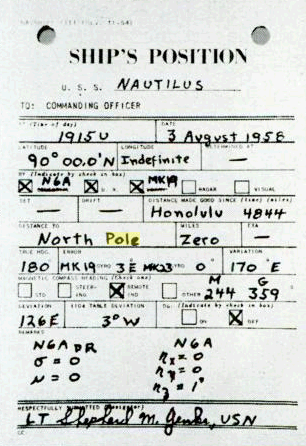 SHIP'S POSITION
U. S. S. NAUTILUS
TO: COMMANDING OFFICER
AT (Time of day) DATE
1915U 3 August 1958
LATITUDE LONGITUDE DETERMINED AT
90° 00.0'N Indefinite —
BY (Indicate by check in box)
N6A D. R. MK19 RADAR VISUAL
SET DRIFT DISTANCE MADE GOOD SINCE (Time) (miles)
— — Honolulu 4844
DISTANCE TO MILES ETA
North Pole Zero —
TRUE HDG. ERROR VARIATION
180 MK19 GYRO 3E MK23 GYRO 0° 170°E
MAGNETIC COMPASS HEADING (Check one) M G
STD. STEER- REMOTE
ING IND 244 359°
DEVIATION TABLE DEVIATION DG: (Indicate by check in box)
126E 3°W ON OFF
REMARKS
N6A DR N6A
= 0 = 0
= 0 = 0
= 1°
RESPECTFULLY SUBMITTED
LT Shepherd M. Jenks, USN